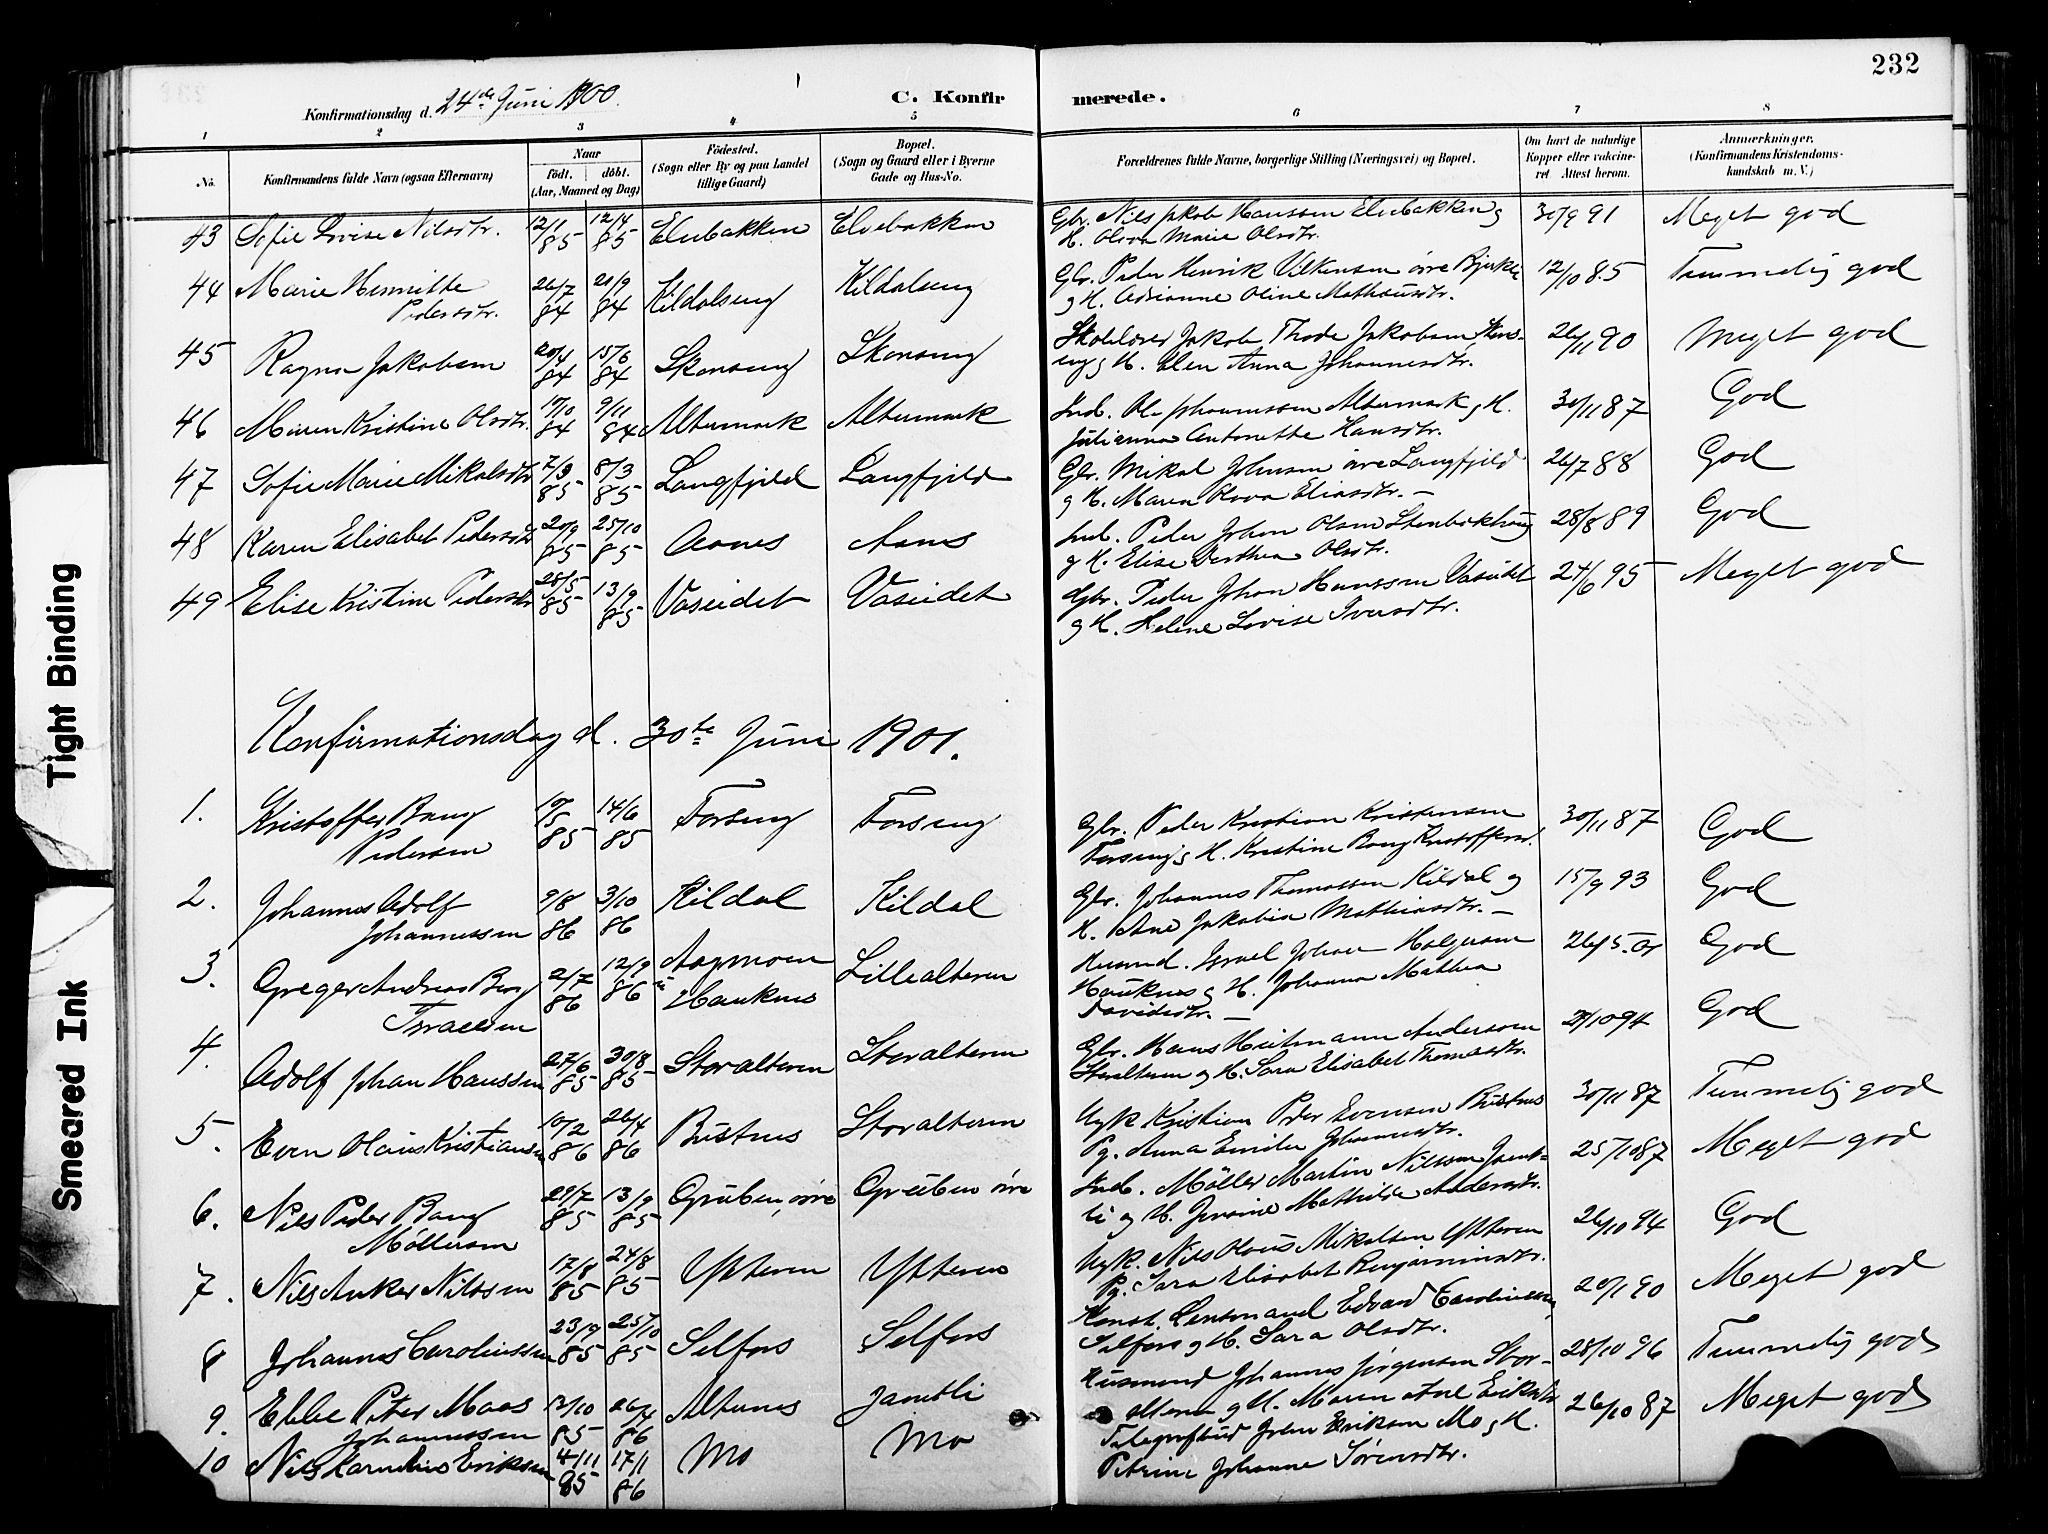 232
Konfirmationsdag d. 24de Juni 1900.
C. Konfirmerede.
1 2 3 4 5 6 7 8
No.
Konfirmandens fulde Navn (ogsaa Efternavn)
Naar
födt. döbt.
(Aar, Maaned og Dag)
Födested.
(Sogn eller By og paa Landet
tillige Gaard)
Bopæl.
(Sogn og Gaard eller i Byerne
Gade og Hus-No.
Forældrenes fulde Navne, borgerlige Stilling (Næringsvei) og Bopæl.
Om havt de naturlige
Kopper eller vakcine-
ret Attest herom.
Anmærkninger.
(Konfirmandens Kristendoms-
kundskab m. V.)
43 Sofie Lovise Nilsdtr. 12/1 85 12/4 85 Elvebakken Elvebakken Gbr. Nils Jakob Hanssen Elvebakken og 30/9 91 Meget god
H. Olova Marie Olsdtr.
44 Marie Henritte 26/7 84 21/9 84 Kildalseng Kildalseng Gbr. Peder Henrik Vilkensen øvre Bjerka 12/10 85 Temmelig god
Pedersdtr. og H. Adrianne Oline Mathæusdtr.
45 Ragna Jakobsen 20/4 84 15/6 84 Skonseng Skonseng Skolelærer Jakob Thode Jakobsen Skons- 26/11 90 Meget god
eng og H. Elen Anna Johannesdtr.
46 Maren Kristine Olsdtr. 17/10 84 9/11 84 Altermark Altermark Ind. Ole Johannessen Altermark og H. 30/11 87 God
Julianna Antonette Hansdtr.
47 Sofie Marie Mikalsdtr 7/3 85 8/3 85 Langfjeld Langfjeld Gbr. Mikal Johnsen øvre Langfjeld 26/7 88 God
og H. Maren Olova Eliasdtr. —
48 Karen Elisabet Pedersdtr 20/9 85 25/10 85 Aanes Aanes Ind. Peder Johan Olsen Stenbækhaug 28/8 89 God
og H. Elise Dorthea Olsdtr.
49 Elise Kristine Pedersdtr 28/5 85 13/9 85 Vaseidet Vaseidet Gbr. Peder Johan Hanssen Vaseidet 24/6 95 Meget god
og H. Helene Lovise Iversdtr.
Konfirmationsdag d. 30te Juni 1901.
1. Kristoffer Bang 10/5 85 14/6 85 Forseng Forseng Gbr. Peder Kristian Kristensen 30/11 87 God
Pedersen Forseng og H. Kristine Bang Kristoffersd.
2. Johannes Adolf 9/8 86 3/10 86 Kildal Kildal Gbr. Johannes Thomassen Kildal og 15/9 93 God
Johannessen H. Ane Jakobia Mathiasdtr. —
3. Greger Andreas Berg 2/7 86 12/9 86 Hauknes Lillealteren Husmd. Israel Johan Holgersen 26/5 01 God
Israelsen Hauknes og H. Johanna Mathea
Davidsdtr. —
4. Adolf Johan Hanssen 27/6 85 30/8 85 Storalteren Storalteren Gbr. Hans Heitmann Andersen 21/10 94 God
Storalteren og H. Sara Elisabet Thomasdtr.
5. Even Olaus Kristiansen 10/2 86 26/4 86 Bustnes Storalteren Ugk. Kristian Peder Evensen Bustnes 30/11 87 Temmelig god
Pg. Anna Emilie Johannesdtr.
6. Nils Peder Bang 29/7 85 13/9 85 Gruben, øvre Gruben øvre Ind. Møller Martin Nilssen Jamt- 25/10 87 Meget god
Møllersen li og H. Jensine Mathilde Andersdtr.
7. Nils Anker Nilssen 17/8 85 24/8 85 Ytteren Ytteren Ugk. Nils Olaus Mikalsen Ytteren 26/10 94 God
Pg. Sara Elisabet Benjaminsdtr.
8 Johannes Caroliussen 23/9 85 25/10 85 Selfors Selfors Konst. Lensmand Edvard Caroliussen 20/1 90 Meget god
Selfors og H. Sara Olsdtr.
9. Ebbe Peter Maas 12/10 85 26/4 86 Alternes Jamtli Husmand Johannes Jørgensen Stor- 28/10 96 Temmelig god
Johannessen alteren og H. Maren Eriksdtr
10 Nils Kornelius Eriksen 4/11 85 17/1 86 Mo Mo Telegrafbud John Eriksen Mo og H. 26/10 87 Meget god
Petrine Johanne Sørensdtr.
Tight Binding
Smeared Ink